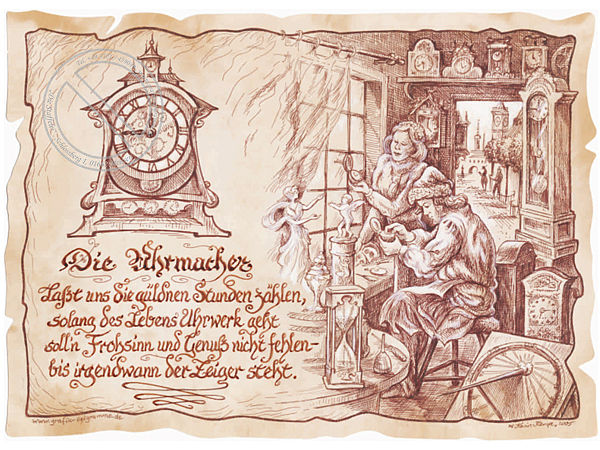 Die Uhrmacher
Laßt uns die güldnen Stunden zählen,
solang des Lebens Uhrwerk geht
soll'n Frohsinn und Genuß nicht fehlen-
bis irgendwann der Zeiger steht.
www.grafix-epigramme.de